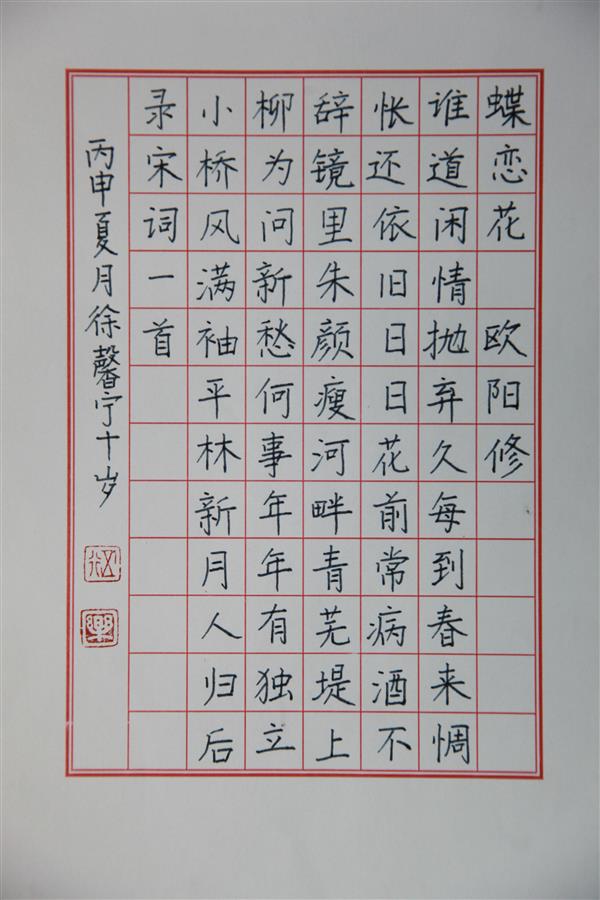 蝶恋花 欧阳修
谁道闲情抛弃久每到春来惆
怅还依旧日日花前常病酒不
辞镜里朱颜瘦河畔青芜堤上
柳为问新愁何事年年有独立
小桥风满袖平林新月人归后
录宋词一首
丙申夏月徐馨宁十岁